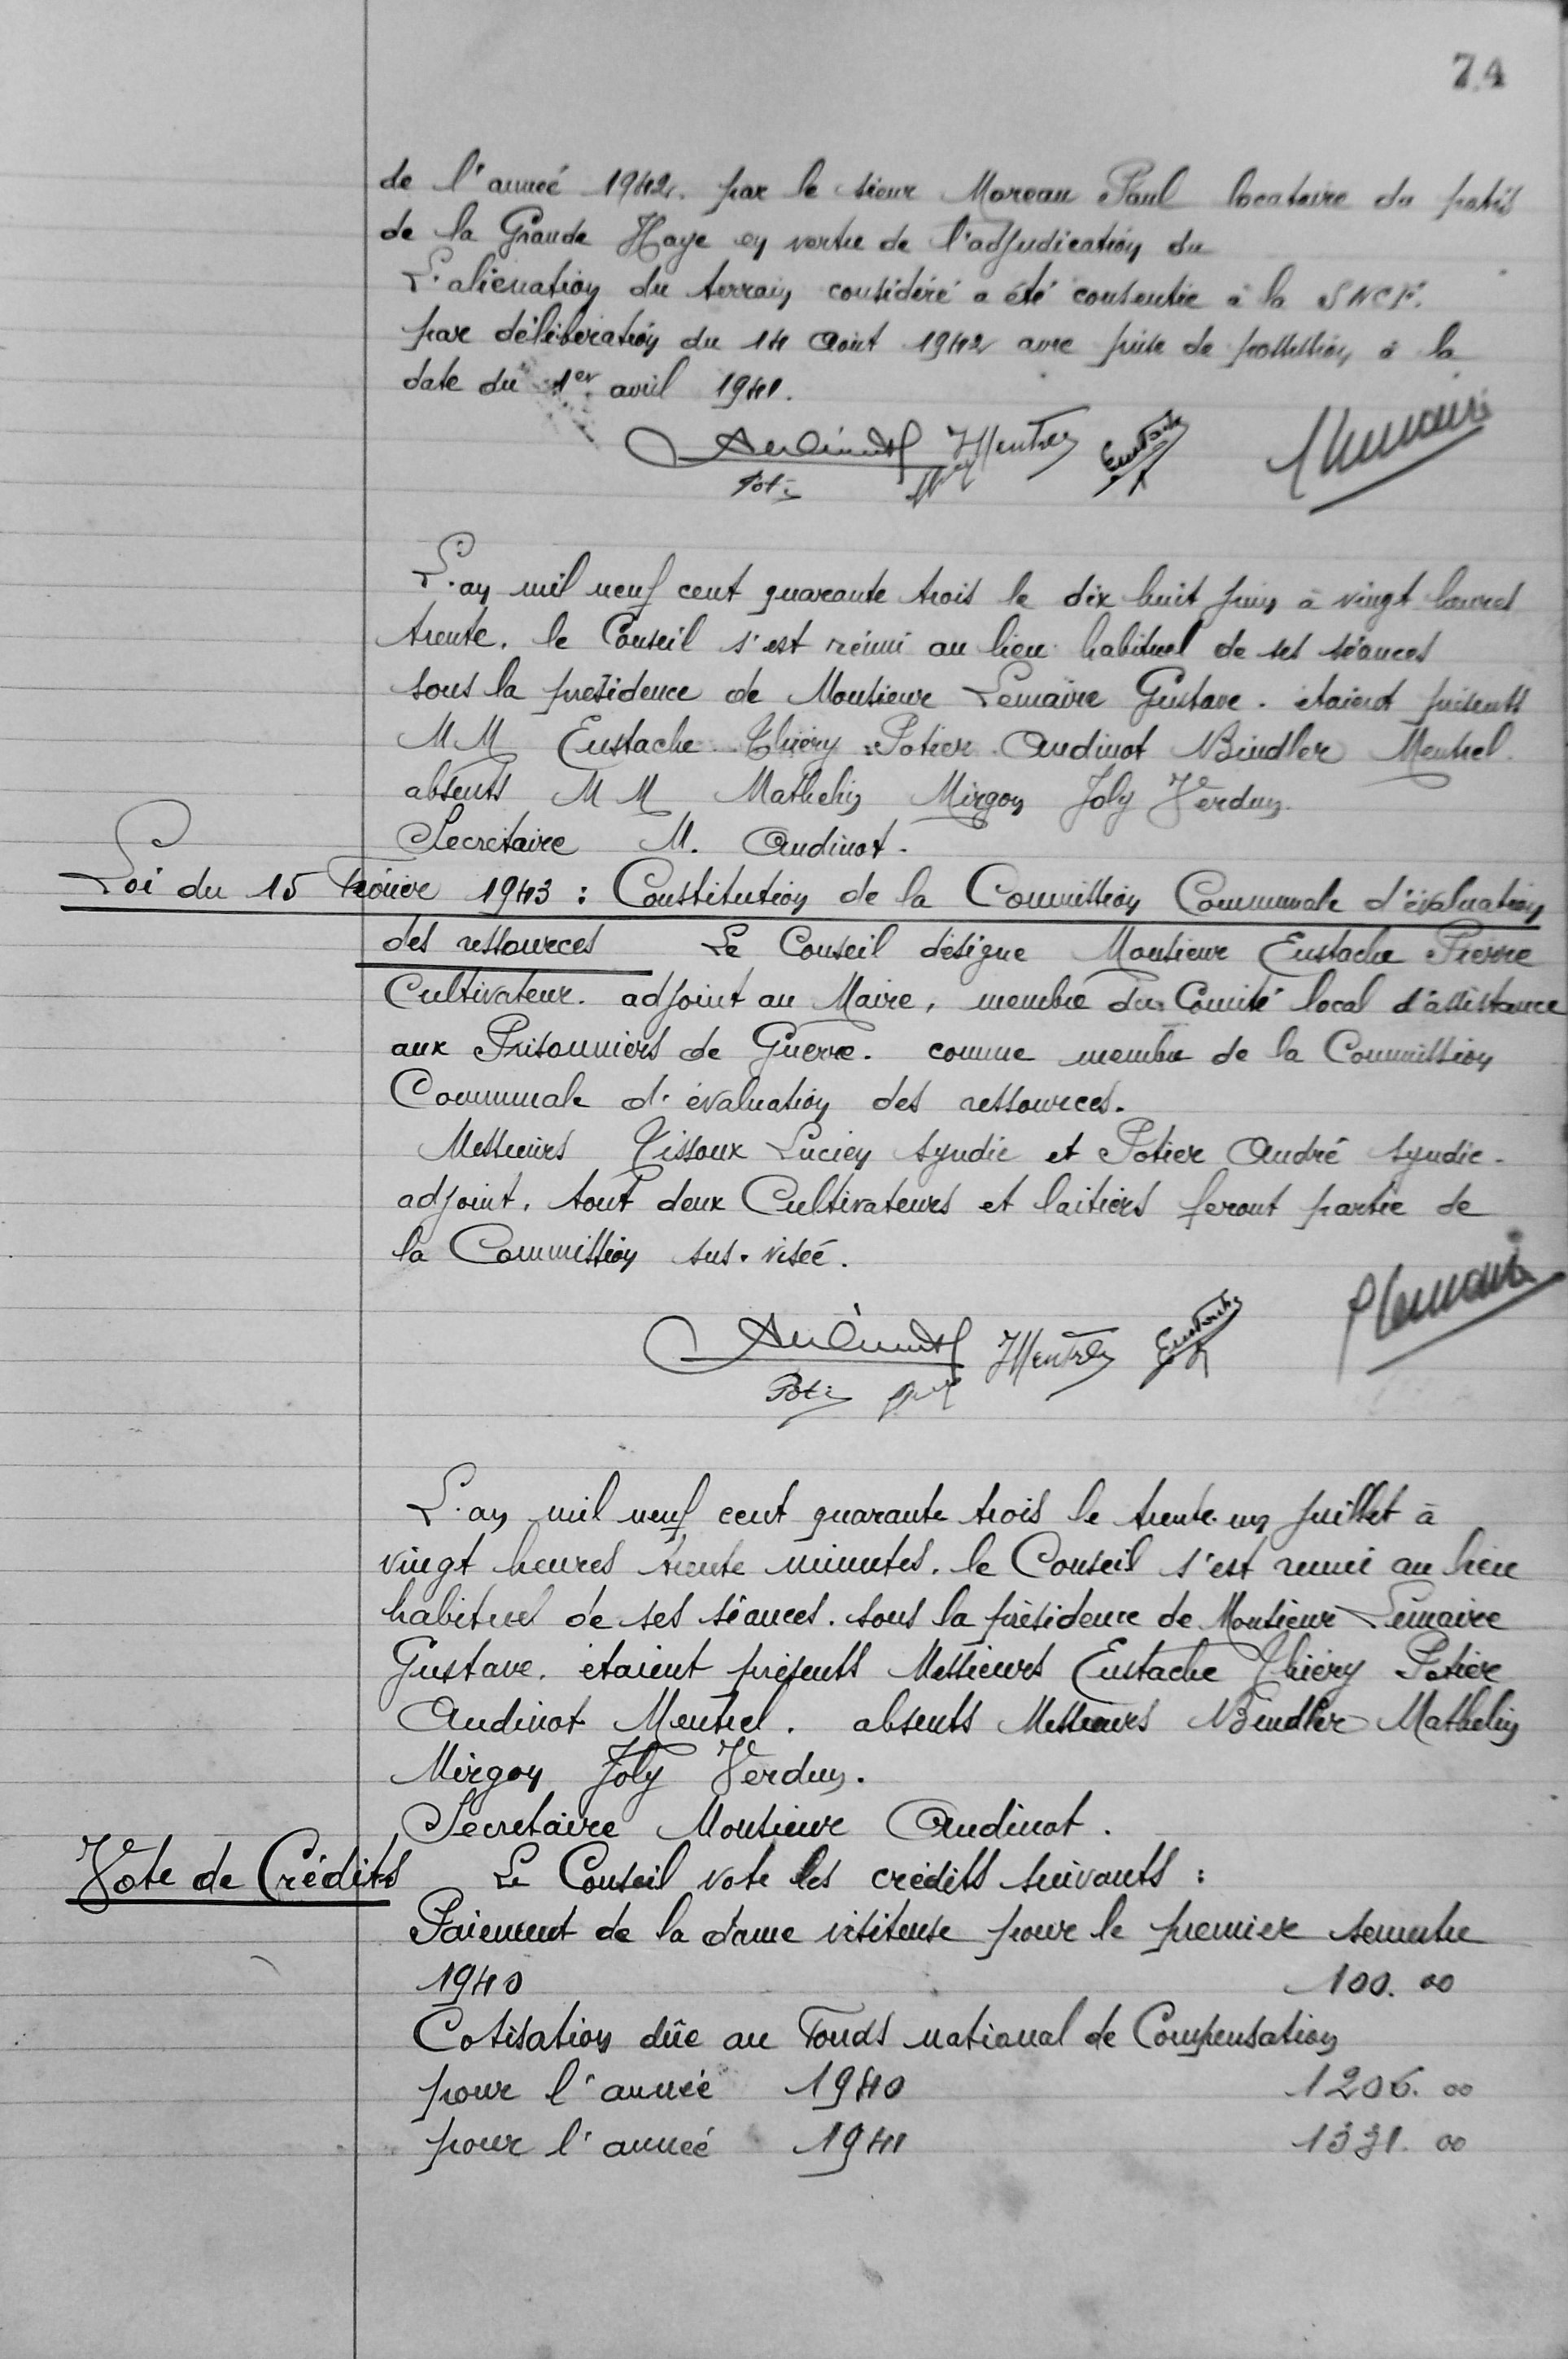 74
de l'année 1942. par le sieur Moreau Paul locataire du patis
de la Grande Haye en vertu de l'adjudication du
L'alienation du terrain considéré a été consentie à la SNCF.
par délibération du 14 Aout 1942 avec prise de possession à la
date du 1er avril 1941.
Audinot JMentrel Eustache Lemaire
Potier
L'an mil neuf cent quarante trois le dix huit juin à vingt heures
trente. le Conseil s'est réuni au lieu habituel de ses séances
sous la présidence de Monsieur Lemaire Gustave. étaient présents
MM Eustache Thiéry Potier Audinot Bindler Mentrel.
absents MM Mathelin Mirgon Joly Verdun.
Secretaire M. Audinot.
Loi du 15 Février 1943 : Constitution de la Commission Communale d'évaluation
des ressources Le Conseil désigne Monsieur Eustache Pierre
Cultivateur. adjoint au Maire, membre du Comité local d'assistance
aux Prisonniers de Guerre. comme membre de la Commission
Communale d'évaluation des ressources.
Messieurs Tissoux Lucien syndic et Potier André syndic-
adjoint. tout deux Cultivateurs et laitiers feront partie de
la Commission sus-visée.
Audinot JMentrel Eustache Lemaire
Potier
L'an mil neuf cent quarante trois le trente un juillet à
vingt heures trente minutes. le Conseil s'est reuni au lieu
habituel de ses séances. sous la présidence de Monsieur Lemaire
Gustave. étaient présents Messieurs Eustache Thiéry Potier
Audinot Mentrel. absents Messieurs Bindler Mathelin
Mirgon Joly Verdun.
Secretaire Monsieur Audinot.
Vote de Crédits Le Conseil vote les crédits suivants :
Paiement de la dame visiteuse pour le premier semestre
1940 100.00
Cotisation dûe au Fonds national de Compensation
pour l'année 1940 1206.00
pour l'année 1941 1331.00